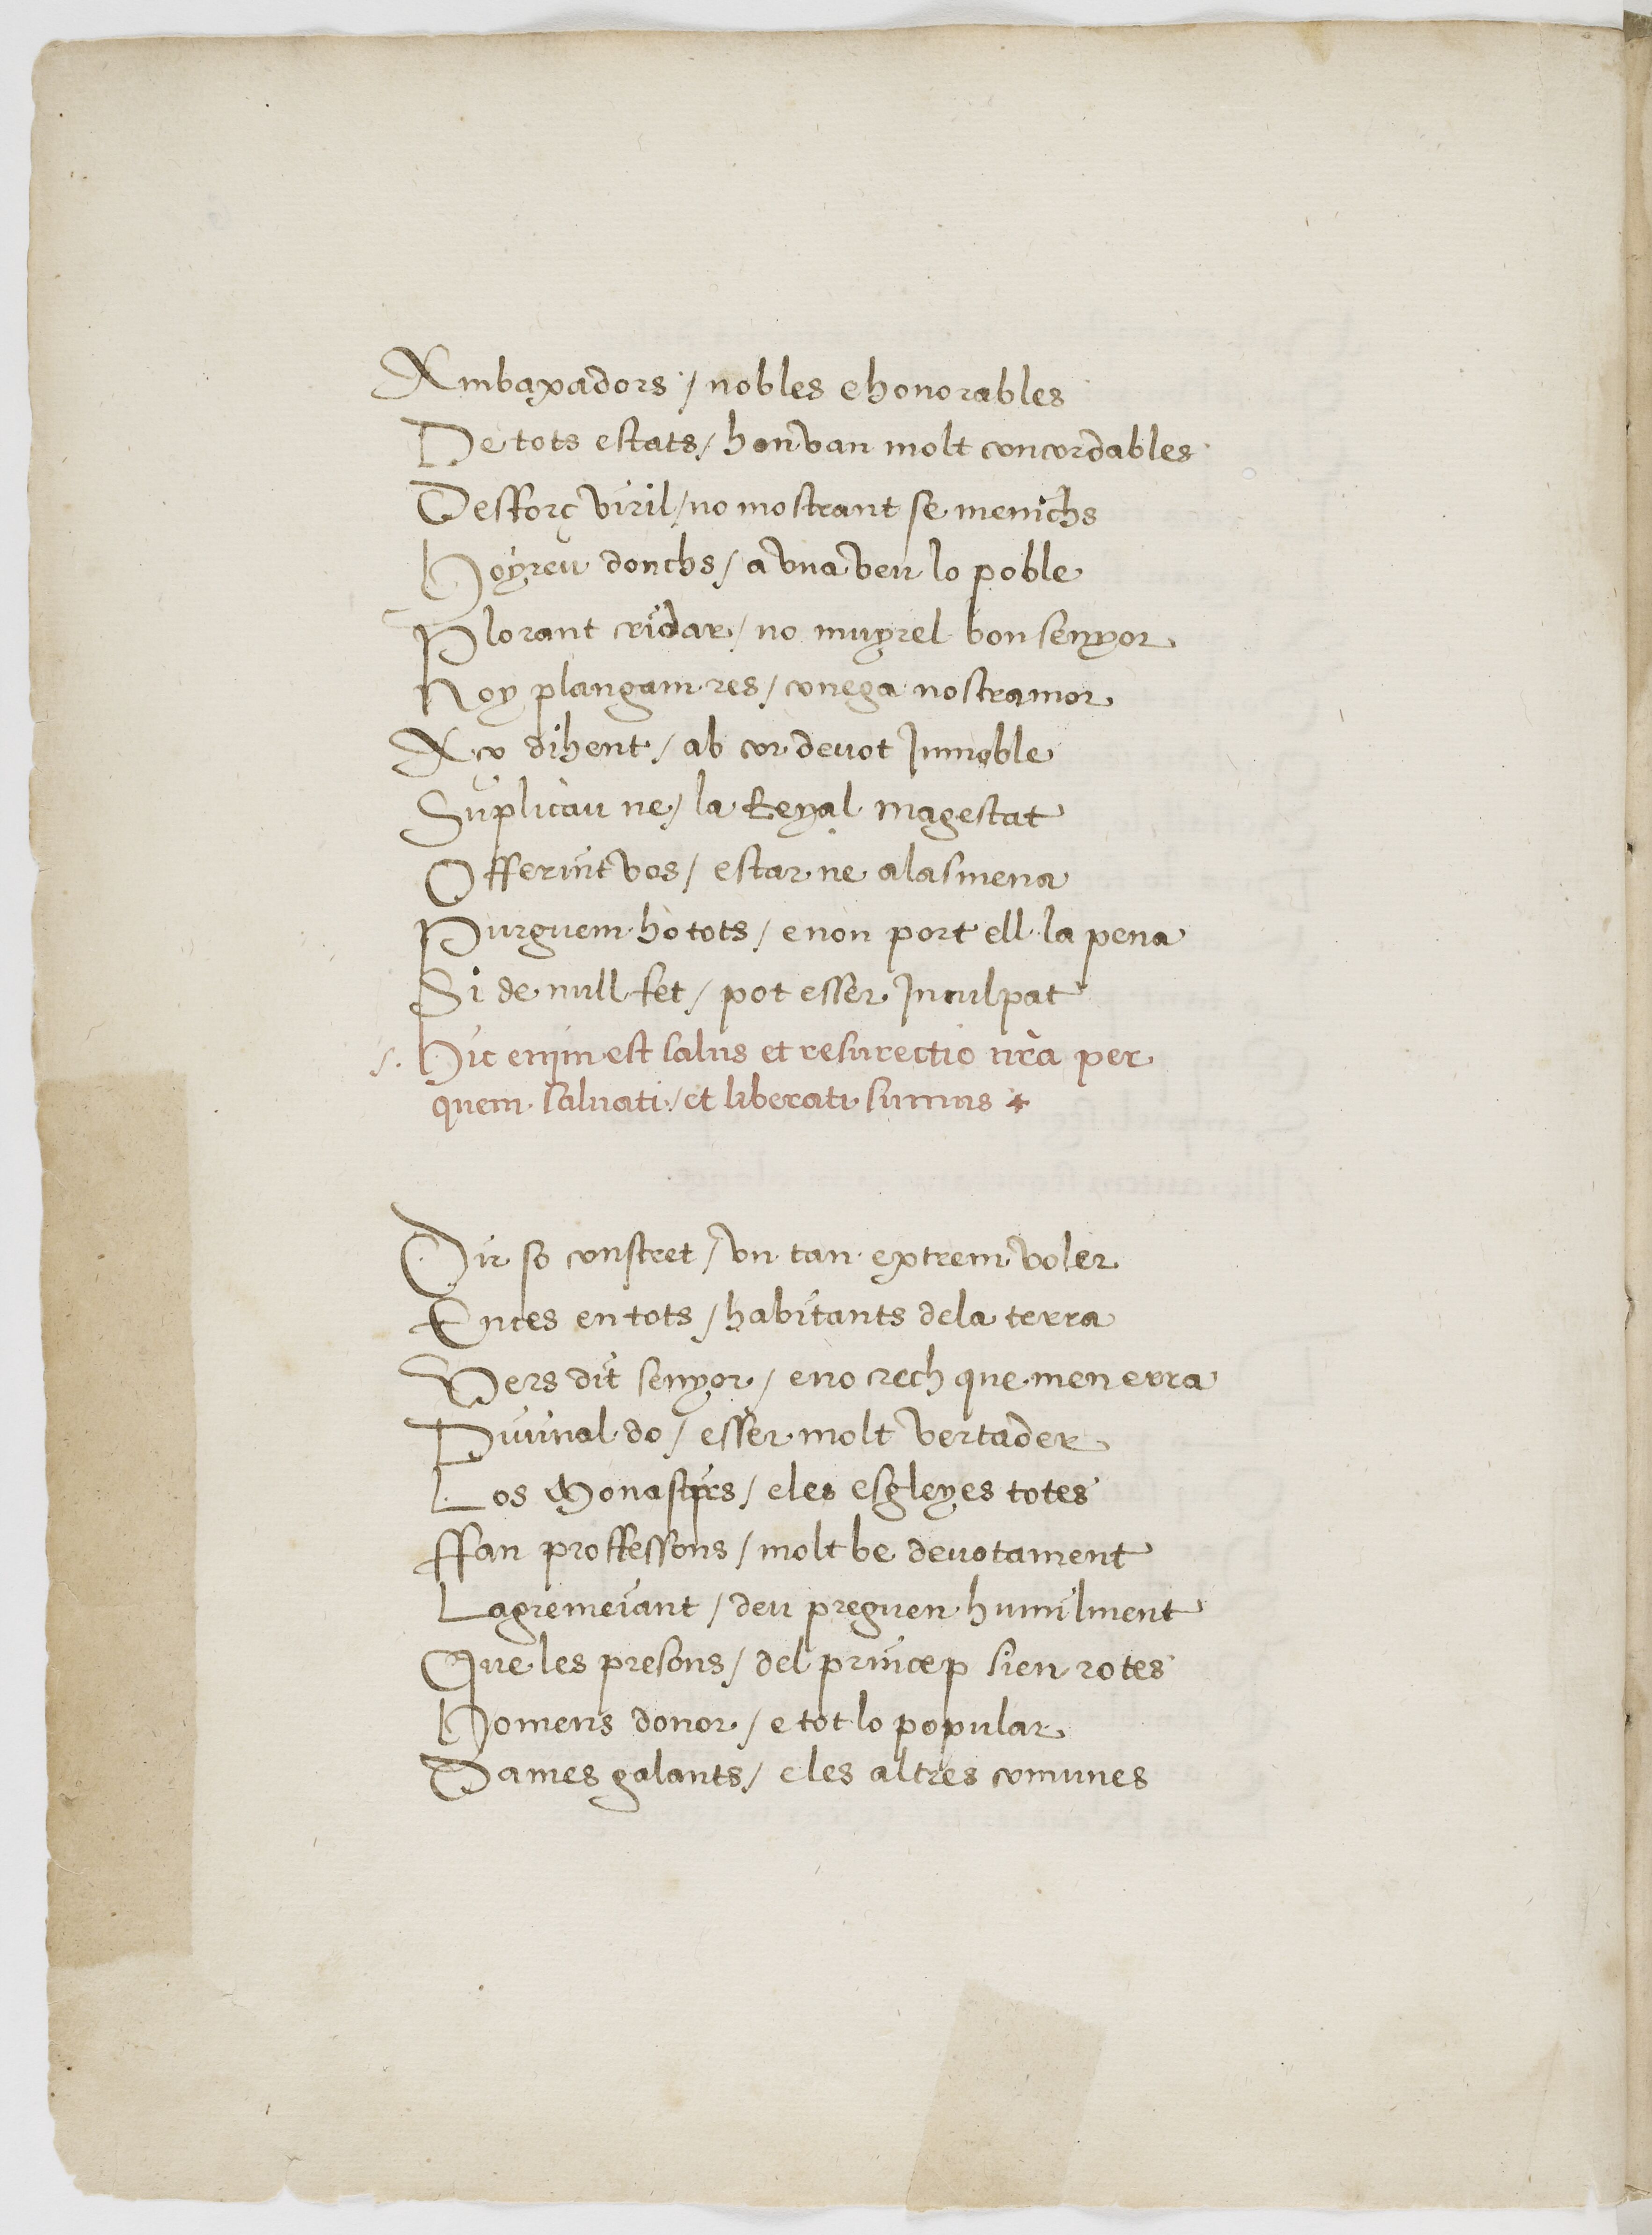 Ambaxadors / nobles e honorables
De tots estats / hon van molt concordables
Desforç viril / no mostrant se menichs
Hoyreu donchs / a vna veu lo poble
Plorant cridar / no muyrel bon senyor
Noy plangam res / conega nostramor
Aço dihent / ab cor deuot Inmoble
Suplicau ne / la Reyal magestat
Offerint vos / estar ne alasmena
Purguem ho tots / e non port ell la pena
Si de null fet / pot esser Inculpat
s. Hic enim est salus et resurectio nra per
quem saluati / et liberati sumus
Dir so constret / vn tan extrem voler
Ences en tots / habitants dela terra
Vers dit senyor / eno crech que men erra
Diuinal do / esser molt vertader
Los Monastirs / eles esgleyes totes
ffan proffessons / molt be deuotament
Lagremeiant / deu preguen humilment
Que les presons / del princep sien rotes
Homens donor / e tot lo popular
Dames galants / e les altres comunes